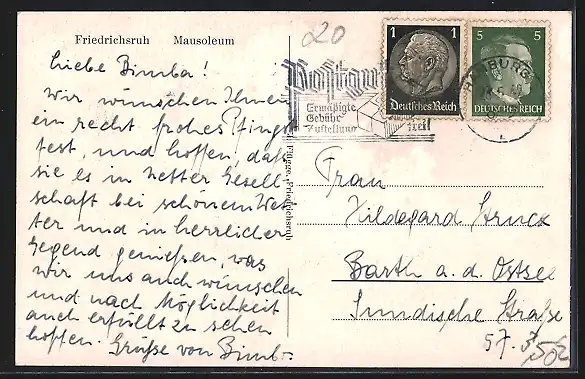 Friedrichsruh Mausoleum
Liebe Bimba!
Wir wünschen Ihnen
ein recht frohes Pfingst
fest, und hoffen, daß
sie es in netter Gesell-
schaft bei schönem Wet-
ter und in herrlicher
Gegend genießen, was
wir uns auch wünschen
und nach Möglichkeit
auch erfüllt zu sehen
hoffen. Grüße von
20
1 1
Deutsches Reich
5 5
DEUTSCHES REICH
HAMBURG
Postgut
Ermäßigte
Gebühr
Zustellung
frei!
Flügge, Friedrichsruh
Frau
Hildegard Struck
Barth a. d. Ostsee
Sundische Straße
57.